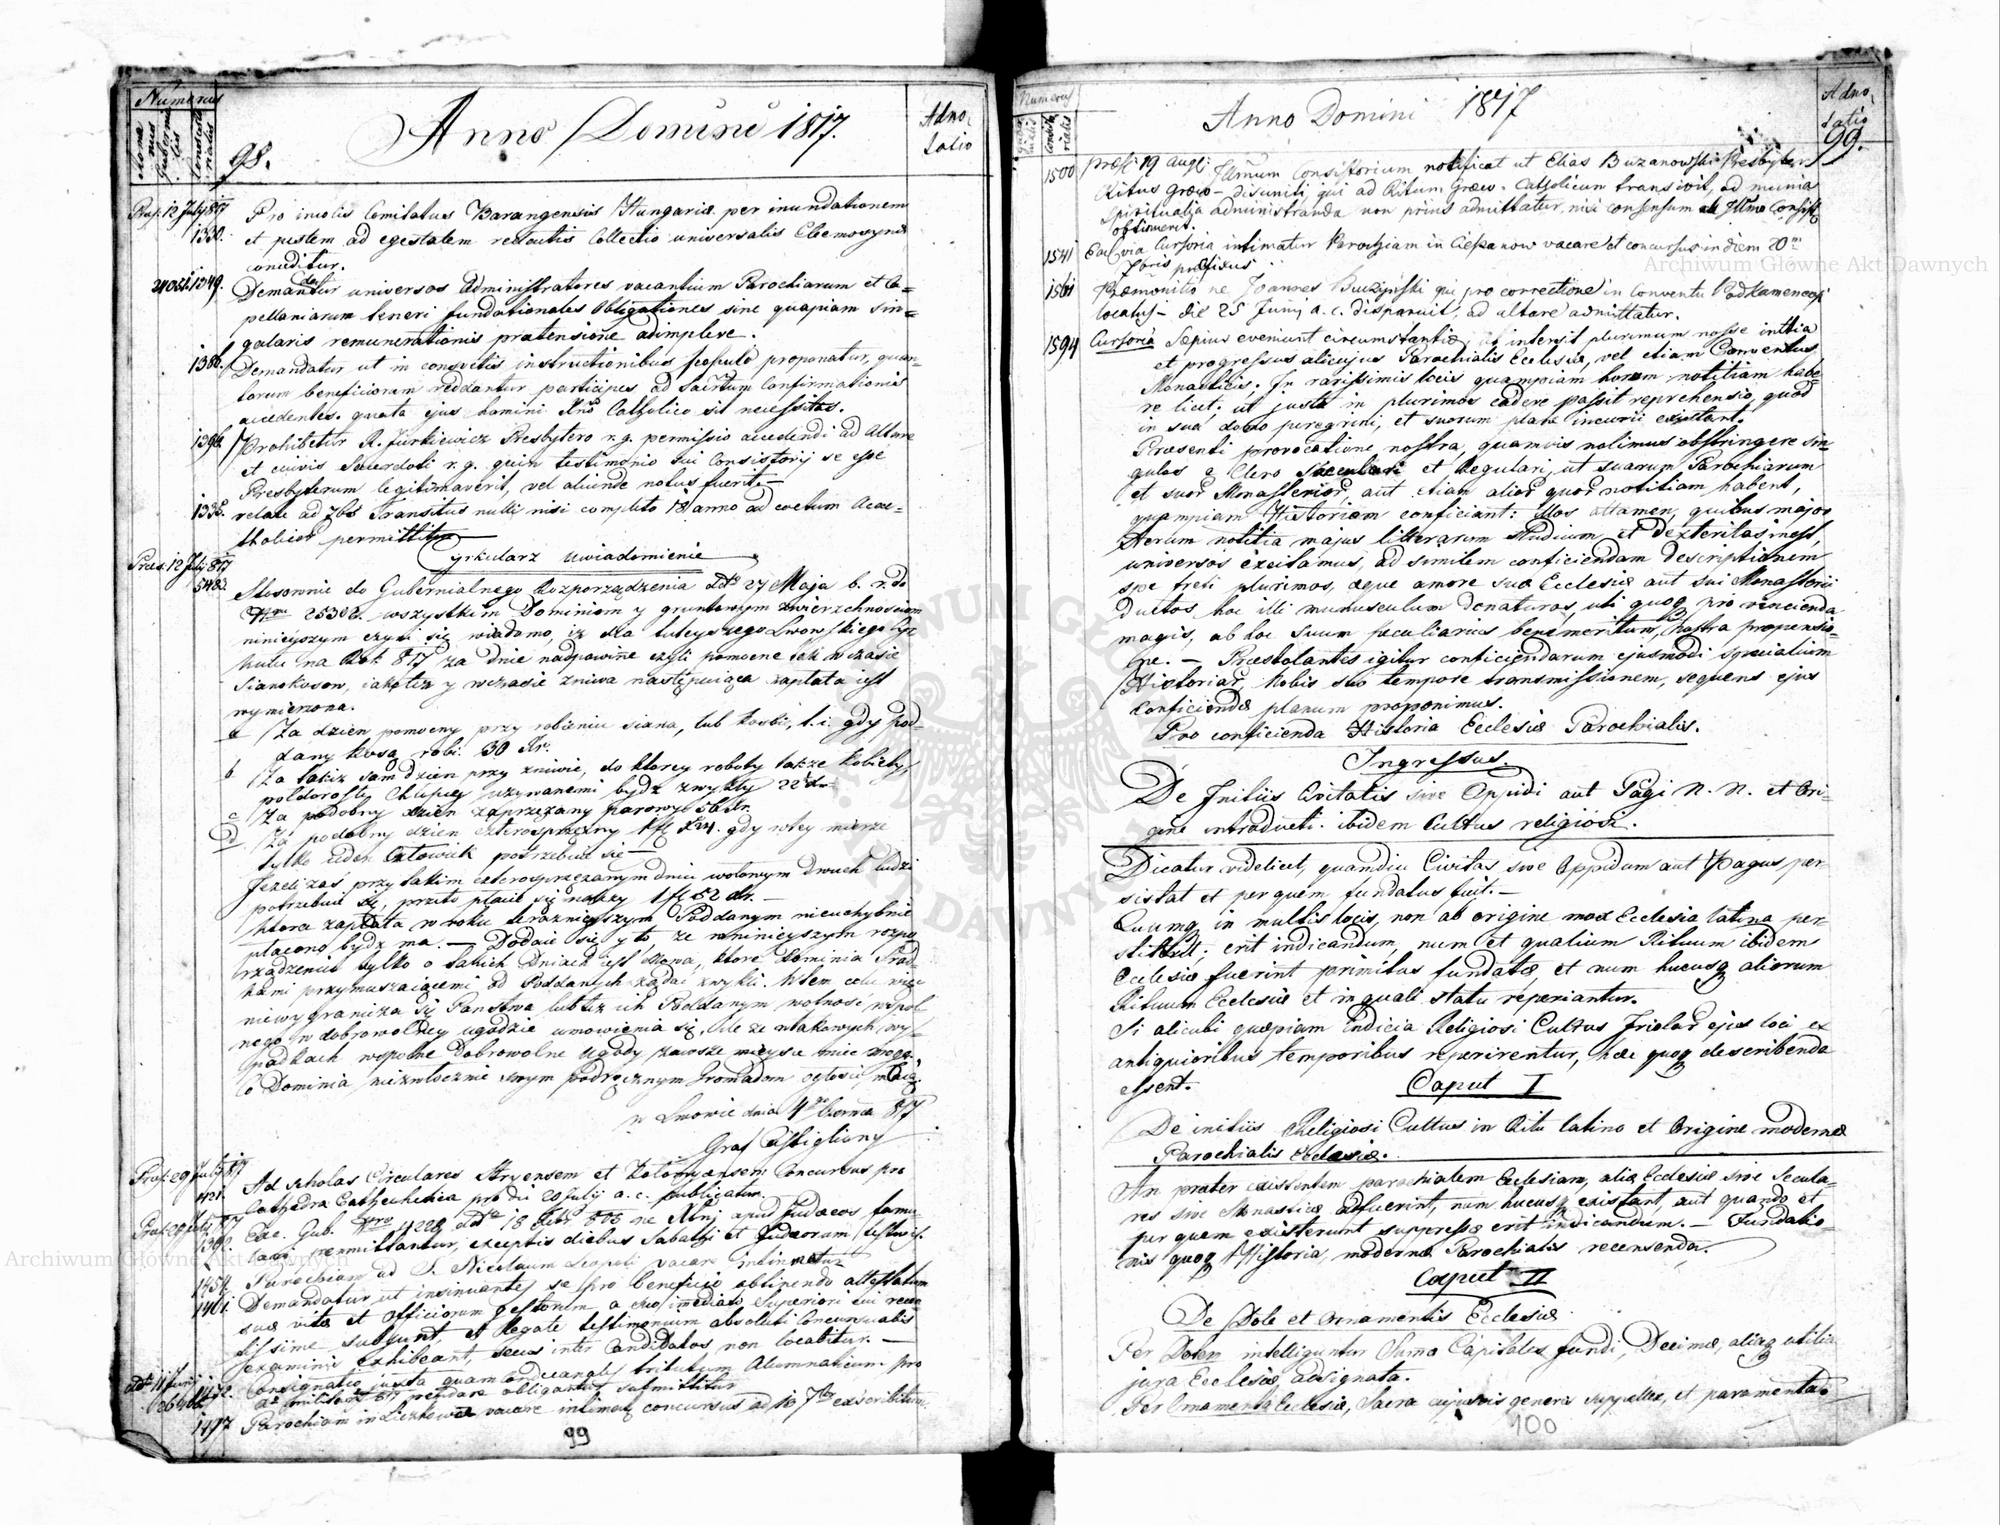 Numerus
Anno Domini 1817.
Adno-
tatio
98.
Præs. 12 July 817
1330.
Pro incolis Comitatus Barangensis Hungariæ per inundationem
et pestem ad egestatem redactis Collectio universalis Eleemosynæ
conceditur.
1349.
Demandatur universos Administratores vacantium Parochiarum et Ca-
pellaniarum teneri fundationales obligationes sine quapiam sin-
gularis remunerationis prætensione adimplere.
1386.
Demandatur ut in consvetis instructionibus populo proponatur, quan-
torum beneficiorum reddantur participes ad Sacrtum Confirmationis
accedentes. quanta ejus homini Xno Catholico sit necessitas.
1396.
Prohibetur R. Jurkiewicz Presbytero r. g. permissio accedendi ad Altare
et cuivis Sacerdoti r. g. quin testimonio sui Consistorij se esse
Presbyterum legitimaverit, vel aliunde notus fuerit.
1335.
relate ad Transitus nulli nisi completo 18 anno ad coetum Acat-
tholicor permittitur
Præs. 12 July 817
5483.
Cyrkularz uwiadomienie
Stosownie do Gubernialnego Rozporządzenia ddto 27 Maja b. r. do
Nru 25302. wszystkim Dominiom y gruntowym zwierzchnościom
ninieyszym czyni się wiadomo, iż dla tuteyszego Lwowskiego Cyr-
kułu na Rok 817 za dnie nadpowinne czyli pomocne tak w czasie
Sianokosow, iakoteż y wczasie żniwa następuiąca zapłata iest
wymierzona.
a /Za dzien pomocny przy robieniu siana, lub kośbie, t. i. gdy pod-
dany kosą robi. 30 Xr.
b. /Za takiż sam dzien przy żniwie, do ktorey roboty także kobiety,
poldorosłe chłopcy używanemi bydź zwykły 22 Xr
c /Za podobny dzien zaprzężany parowy 56 Xr.
d /Za podobny dzien czterosprzężny gdy wtey mierze
tylko ieden Człowiek potrzebuie się
Jeżeli zaś przy takim czterosprzężanym dniu wołowym dwuch ludzi
potrzebuie się, przeto płacić się należy 1 fl 52 Xr. —
ktora zapłata w roku teraznieyszym Poddanym nieuchybnie
płacono bydź ma. — Dodaie się y to, że w ninieyszym rozpo-
rządzeniu tylko o takich Dniach iest Mowa, ktore Dominia Środ-
kami przymuszaiącemi od Poddanych żądać zwykli. Wtem celu więc
niewygranicza się Państwa lubteż ich Poddanym wolność wspol-
nego w dobrowolney ugodzie umowienia się, Ale że wtakowych wy-
padkach wspolne Dobrowolne Ugody zawsze mieysce mieć mogą,
Co Dominia niezwłocznie swym podręcznym Gromadom ogłosić maią.
w Lwowie dnia 4go Czerwca 817
Graf Castiglioni
Præs. 29 July 817
1421.
Ad scholas Circulares Stryensem et Zołoczoviensem Concursus pro
Cathedra Cathechetica pro die 20 July a. c. publicatur.
Præs. 29 July 817
1392.
Exc. Gub. Nro 4228 ddto 18 Febr. 818 ne Xtnj apud Judæos famu-
lari permittantur, exceptis diebus Sabathi et Judæorum festivis.
1454.
Parochiam ad S. Nicolaum Leopoli vacare intimatur
1461.
Demandatur ut insinuantes se pro beneficio obtinendo attestatum
suæ vitæ et officiorum gestorum a suo immediato Superiori sui recen-
tissime sumpti, et Regate testimonium absoluti Concursualis
examinis exhibeant, secus inter Candidatos non locabitur. —
1472.
Consignatio juxta quam tributum Alumnaticum pro
pendere obligantur submittitur
1497
Parochiam in vacare intimatur concursus ad 18 7bris exscribitur.
99
Numerus
Anno Domini 1817
Adno-
tatio
99.
1500
præs. 19 Augti Illmum Consistorium notificat ut Elias Buzanowski Presbyter
Ritus græco-disuniti qui ad Ritum Græco-Catholicum transivit, ad munia
Spiritualia administranda non prius admittatur, nisi consensum ab Illmo Consist.
obtinuerit.
1541
Eadem via Cursoria intimatur Parochiam in Ciepanow vacare et concursus in diem 20m
præfixus
1561
Præmonitio ne Joannes Buczynski qui pro correctione in Conventu Podkamenensi
locatus die 25 Junij a. c. disparuit, ad altare admittatur.
1594
Cursoria Sæpius eveniunt circumstantiæ, ut intersit plurimum nosse initia
et progressus alicujus Parochialis Ecclesiæ, vel etiam Conventus
Monasticis. In rarissimis locis quampiam horum notitiam habe-
re licet; ut juste in plurimos cadere possit reprehensio, quod
in sua domo peregrini, et suorum plane incurii existant.
Præsenti provocatione nostra, quamvis nolimus obstringere sin-
gulos e Clero Sæculari et Regulari, ut suarum Parochiarum
et suor Monasterior, aut etiam alior quor notitiam habent,
quampiam Historiam conficiant: Illos attamen, quibus major
rerum notitia majus litterarum Studium et Dexteritas inest,
universos excitamus, ad similem conficiendam Descriptionem
spe freti plurimos, æque amore suæ Ecclesiæ aut sui Monasterii
ductos hoc illi munusculum donaturos, uti quoq pro vincienda
magis, ab hoc suum peculiarius benemeritum, nostra propensio-
ne. — Præstolantes igitur conficiendarum ejusmodi specialium
Historiar Nobis suo tempore transmissionem, sequens ejus
conficiendæ planum proponimus.
Pro conficienda Historia Ecclesiæ Parochialis.
Ingressus.
De Initiis Civitatis sive Oppidi aut Pagi N. N. et Ori-
gine introducti ibidem Cultus religiosi.
Dicatur videlicet, quandiu Civitas sive Oppidum aut Pagus per-
sistat et per quem fundatus fuit. —
Quumq in multis locis, non ab origine mox Ecclesia latina per-
stiterit; erit indicandum, num et qualium Rituum ibidem
Ecclesiæ fuerint primitus fundatæ, et num hucusq aliorum
Rituum Ecclesiæ et in quali statu reperiantur.
Si alicubi quæpiam indicia Religiosi Cultus Incolar ejus loci ex
antiquioribus temporibus reperirentur, hæc quoq describenda
essent.
Caput I
De initiis Religiosi Cultus in Ritu latino et Origine modernæ
Parochialis Ecclesiæ.
An præter existentem parochialem Ecclesiam, aliæ Ecclesiæ sive Secula-
res sive Monasticæ adfuerint, num hucusq existant, aut quando et
per quem existerunt suppressæ erit indicandum. — Fundatio-
nis quoq Historia, modernæ Parochialis recensenda.
Caput II
De Dote et Ornamentis Ecclesiæ
Per Dotem intelliguntur Summa Capitales, fundi, Decimæ, aliaq utilia
jura Ecclesiæ adsignata.
Per Ornamenta Ecclesiæ, Sacra cujusvis generis suppellex, et paramenta
100
Archiwum Główne Akt Dawnych
Archiwum Główne Akt Dawnych